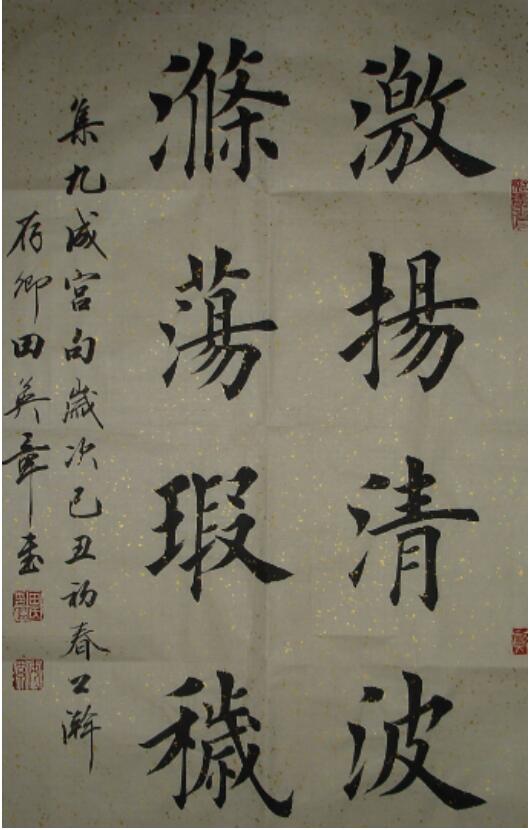 激揚清波
滌蕩瑕穢
集九成宫句歲次己丑初春公瀚
存鄉田英章書